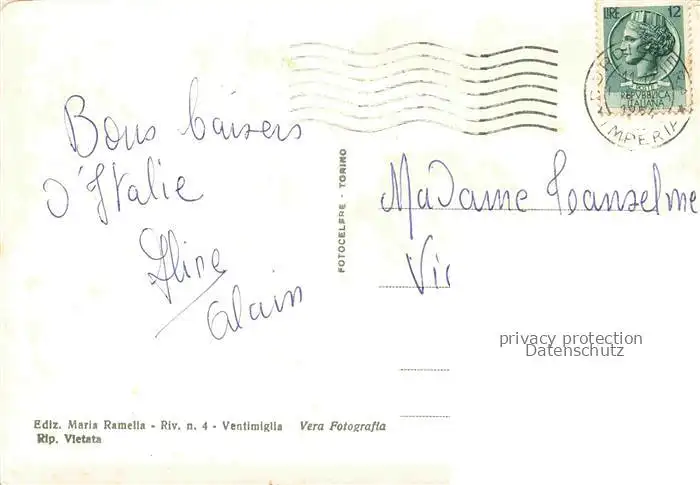 Bons baisers
d'Italie
Alain
Madame Lanselme
FOTOCELERE - TORINO
LIRE 12
REPVBBLICA
ITALIANA
IMPERIA
privacy protection
Datenschutz
Ediz. Maria Ramella - Riv. n. 4 - Ventimiglia Vera Fotografia
Rip. Vietata